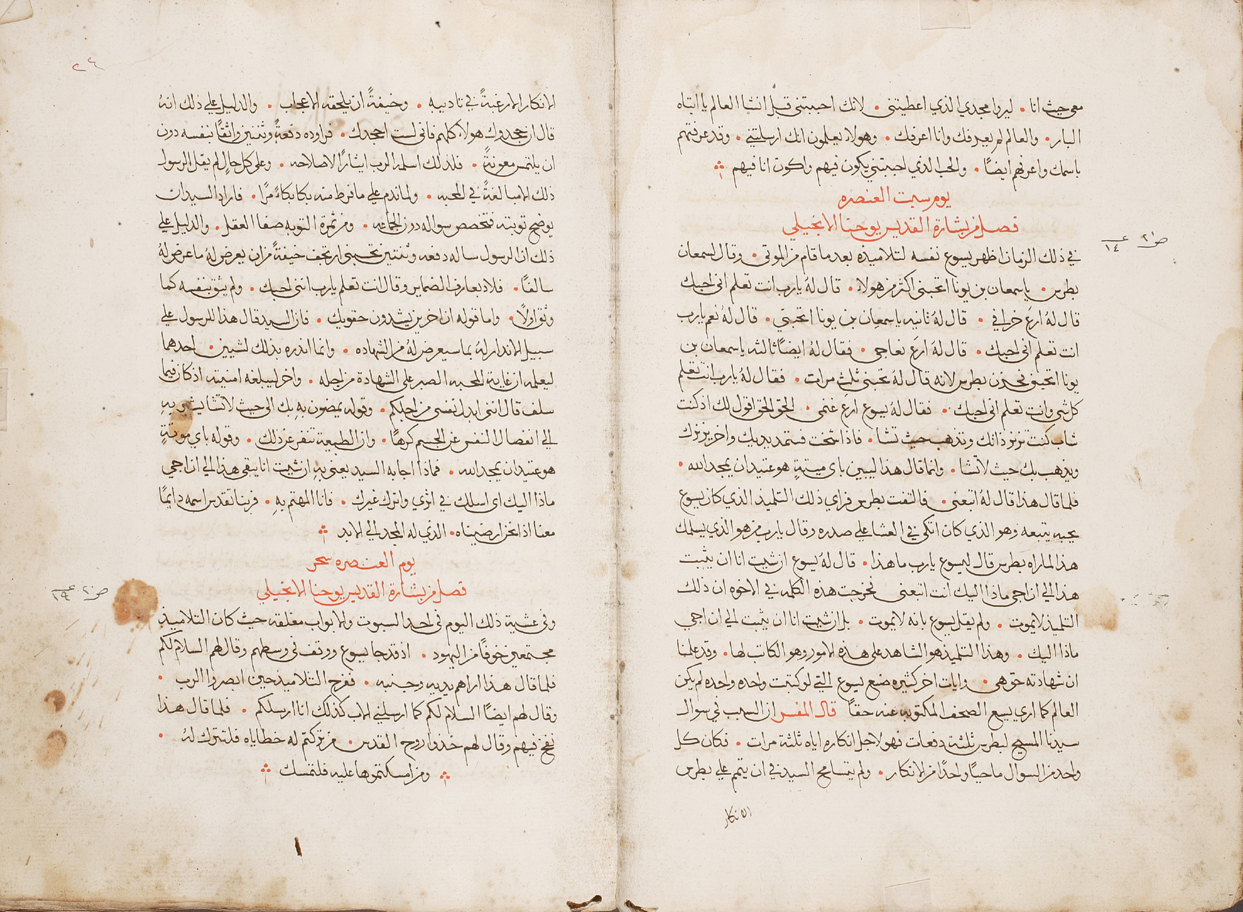 معي حيث انا • ليروا مجدي الذي اعطيتني • لانك احببتني قبل انشا العالم يا ابتاه
البار • والعالم لم يعرفك وانا اعرفك • وهولا يعلمون انك ارسلتني • وقد عرفتهم
باسمك واعرفهم ايضًا • والحب الذي احببتني يكون فيهم واكون انا فيهم
يوم سبت العنصره
فصل من بشارة القديس يوحنا الانجيلي
في ذلك الزمان اظهر يسوع نفسه لتلاميذه بعد ما قام من الموتى • وقال لسمعان
بطرس • يا سمعان بن يونا اتحبني اكثر من هولا • قال له يارب انت تعلم اني احبك
قال له ارع خرافي • قال له ثانيه يا سمعان بن يونا اتحبني • قال له نعم يارب
انت تعلم اني احبك • قال له ارع نعاجي • فقال له ايضًا ثالثه يا سمعان بن
يونا اتحبني فحزن بطرس لانه قال له تحبني ثلث مرات • فقال له يارب انت تعلم
كل شي وانت تعلم اني احبك • فقال له يسوع ارع غنمي • الحق الحق اقول لك اذ كنت
شاب كنت تزنر ذاتك وتذهب حيث تشا • فاذا شخت فستمد يديك واخر يزنرك
ويذهب بك حيث لا تشا • وانما قال هذا ليبين باي ميتة هو عتيد ان يمجد الله •
فلما قال هذا قال له اتبعني • فالتفت بطرس فراي ذلك التلميذ الذي كان يسوع
يحبه يتبعه وهو الذي كان اتكى في العشا على صدره وقال يارب من هو الذي يسلمك
هذا لما راه بطرس قال ليسوع يارب ما هذا • قال له يسوع ان شيت انا ان يثبت
هذا الى ان اجي ماذا اليك انت اتبعني فخرجت هذه الكلمه في الاخوه ان ذلك
التلميذ لا يموت • ولم يقل يسوع بانه لا يموت • بل ان شيت انا ان يثبت الى ان اجي
ماذا اليك • وهذا التلميذ هو الشاهد على هذه الامور وهو الكاتب لها • وقد علمنا
ان شهادته حق هي • وايات اخر كثيره صنع يسوع التي لو كتبت واحده واحده لم يكن
العالم كما اري يسع الصحف المكتوبه عنه حقًا قال المفسر ان السبب في سوال
سيدنا المسيح لبطرس ثلثة دفعات فهو لاجل انكاره اياه ثلثة مرات • فكان كل
واحد من السوال ماحيًا واحدًا من الانكار • ولم يتسامح السيد في ان يتم على بطرس
الانكار
ص ٢١ ع ١٤
٢٤
الانكار الا رغبةً في تاديبه • وخيفةً ان يلحقه الاعجاب • والدليل على ذلك انه
قال ان جحدوك هولا كلهم فاني لست اجحدك • فراوده دفعةً وثنتين واثقًا بنفسه دون
ان يلتمس معونةً • فلذلك اسلمه الرب ايثارًا لاصلاحه • وعلى كل حال لم يقل الرسول
ذلك الا مبالغةً في المحبه • ولما ندم على ما فرط منه بكا بكاءً مرًا • فاراد السيد ان
يوضح توبته فخصص سواله دون الجماعه • ومن ثمرة التوبه صفا العقل • والدليل على
ذلك ان الرسول ساله دفعه وثنتين تحبني ارتجف خيفةً من ان يعرض له ما عرض له
سالفًا • فلاذ بعارف الضماير وقال انت تعلم يارب انني احبك • ولم يثق بنفسه كما
وثق اولًا • واما قوله ان اخرين يشدون حقويك • فان السيد قال هذا للرسول على
سبيل الانذار له بما سيعرض له من الشهاده • وانما انذره بذلك لشيين • احدهما
ليعلمه ان غاية المحبه الصبر على الشهادة من اجله • واخر ليبلغه امنيته اذ كان فيما
سلف قال انني ابدل نفسي من اجلك • وقوله يمضون به بك الى حيث لا تشا يشير به
الى انفصال النفس عن الجسم كرهًا • وان الطبيعة تنفر عن ذلك • وقوله باي موتةٍ
هو عتيد ان يمجد الله • فماذا اجابه السيد يعني به ان شيت انا يبقى هذا الى ان اجي
ماذا اليك اي اسلك في اثري واترك غيرك • فانا المهتم به • فربنا تقدس اسمه دايمًا
معنا اذا نحن ارضيناه • الذي له المجد الى الابد
يوم العنصره سحر
فصل من بشارة القديس يوحنا الانجيلي
وفي عشية ذلك اليوم في احد السبوت والابواب مغلقه حيث كان التلاميذ
مجتمعين خوفًا من اليهود • اذ قد جا يسوع ووقف في وسطهم وقال لهم السلام لكم
فلما قال هذا اراهم يديه وجنبه • ففرح التلاميذ حين ابصروا الرب •
وقال لهم ايضًا السلام لكم كما ارسلني الاب كذلك انا ارسلكم • فلما قال هذا
نفخ فيهم وقال لهم خذوا روح القدس • من تركتم له خطاياه فلتترك له •
ومن امسكتموها عليه فلتمسك